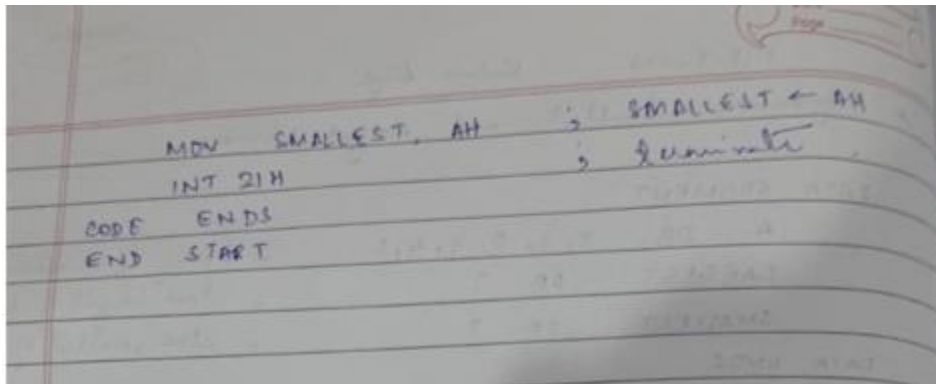 Page
MOV SMALLEST, AH ; SMALLEST ← AH
INT 21H ; terminate
CODE ENDS
END START